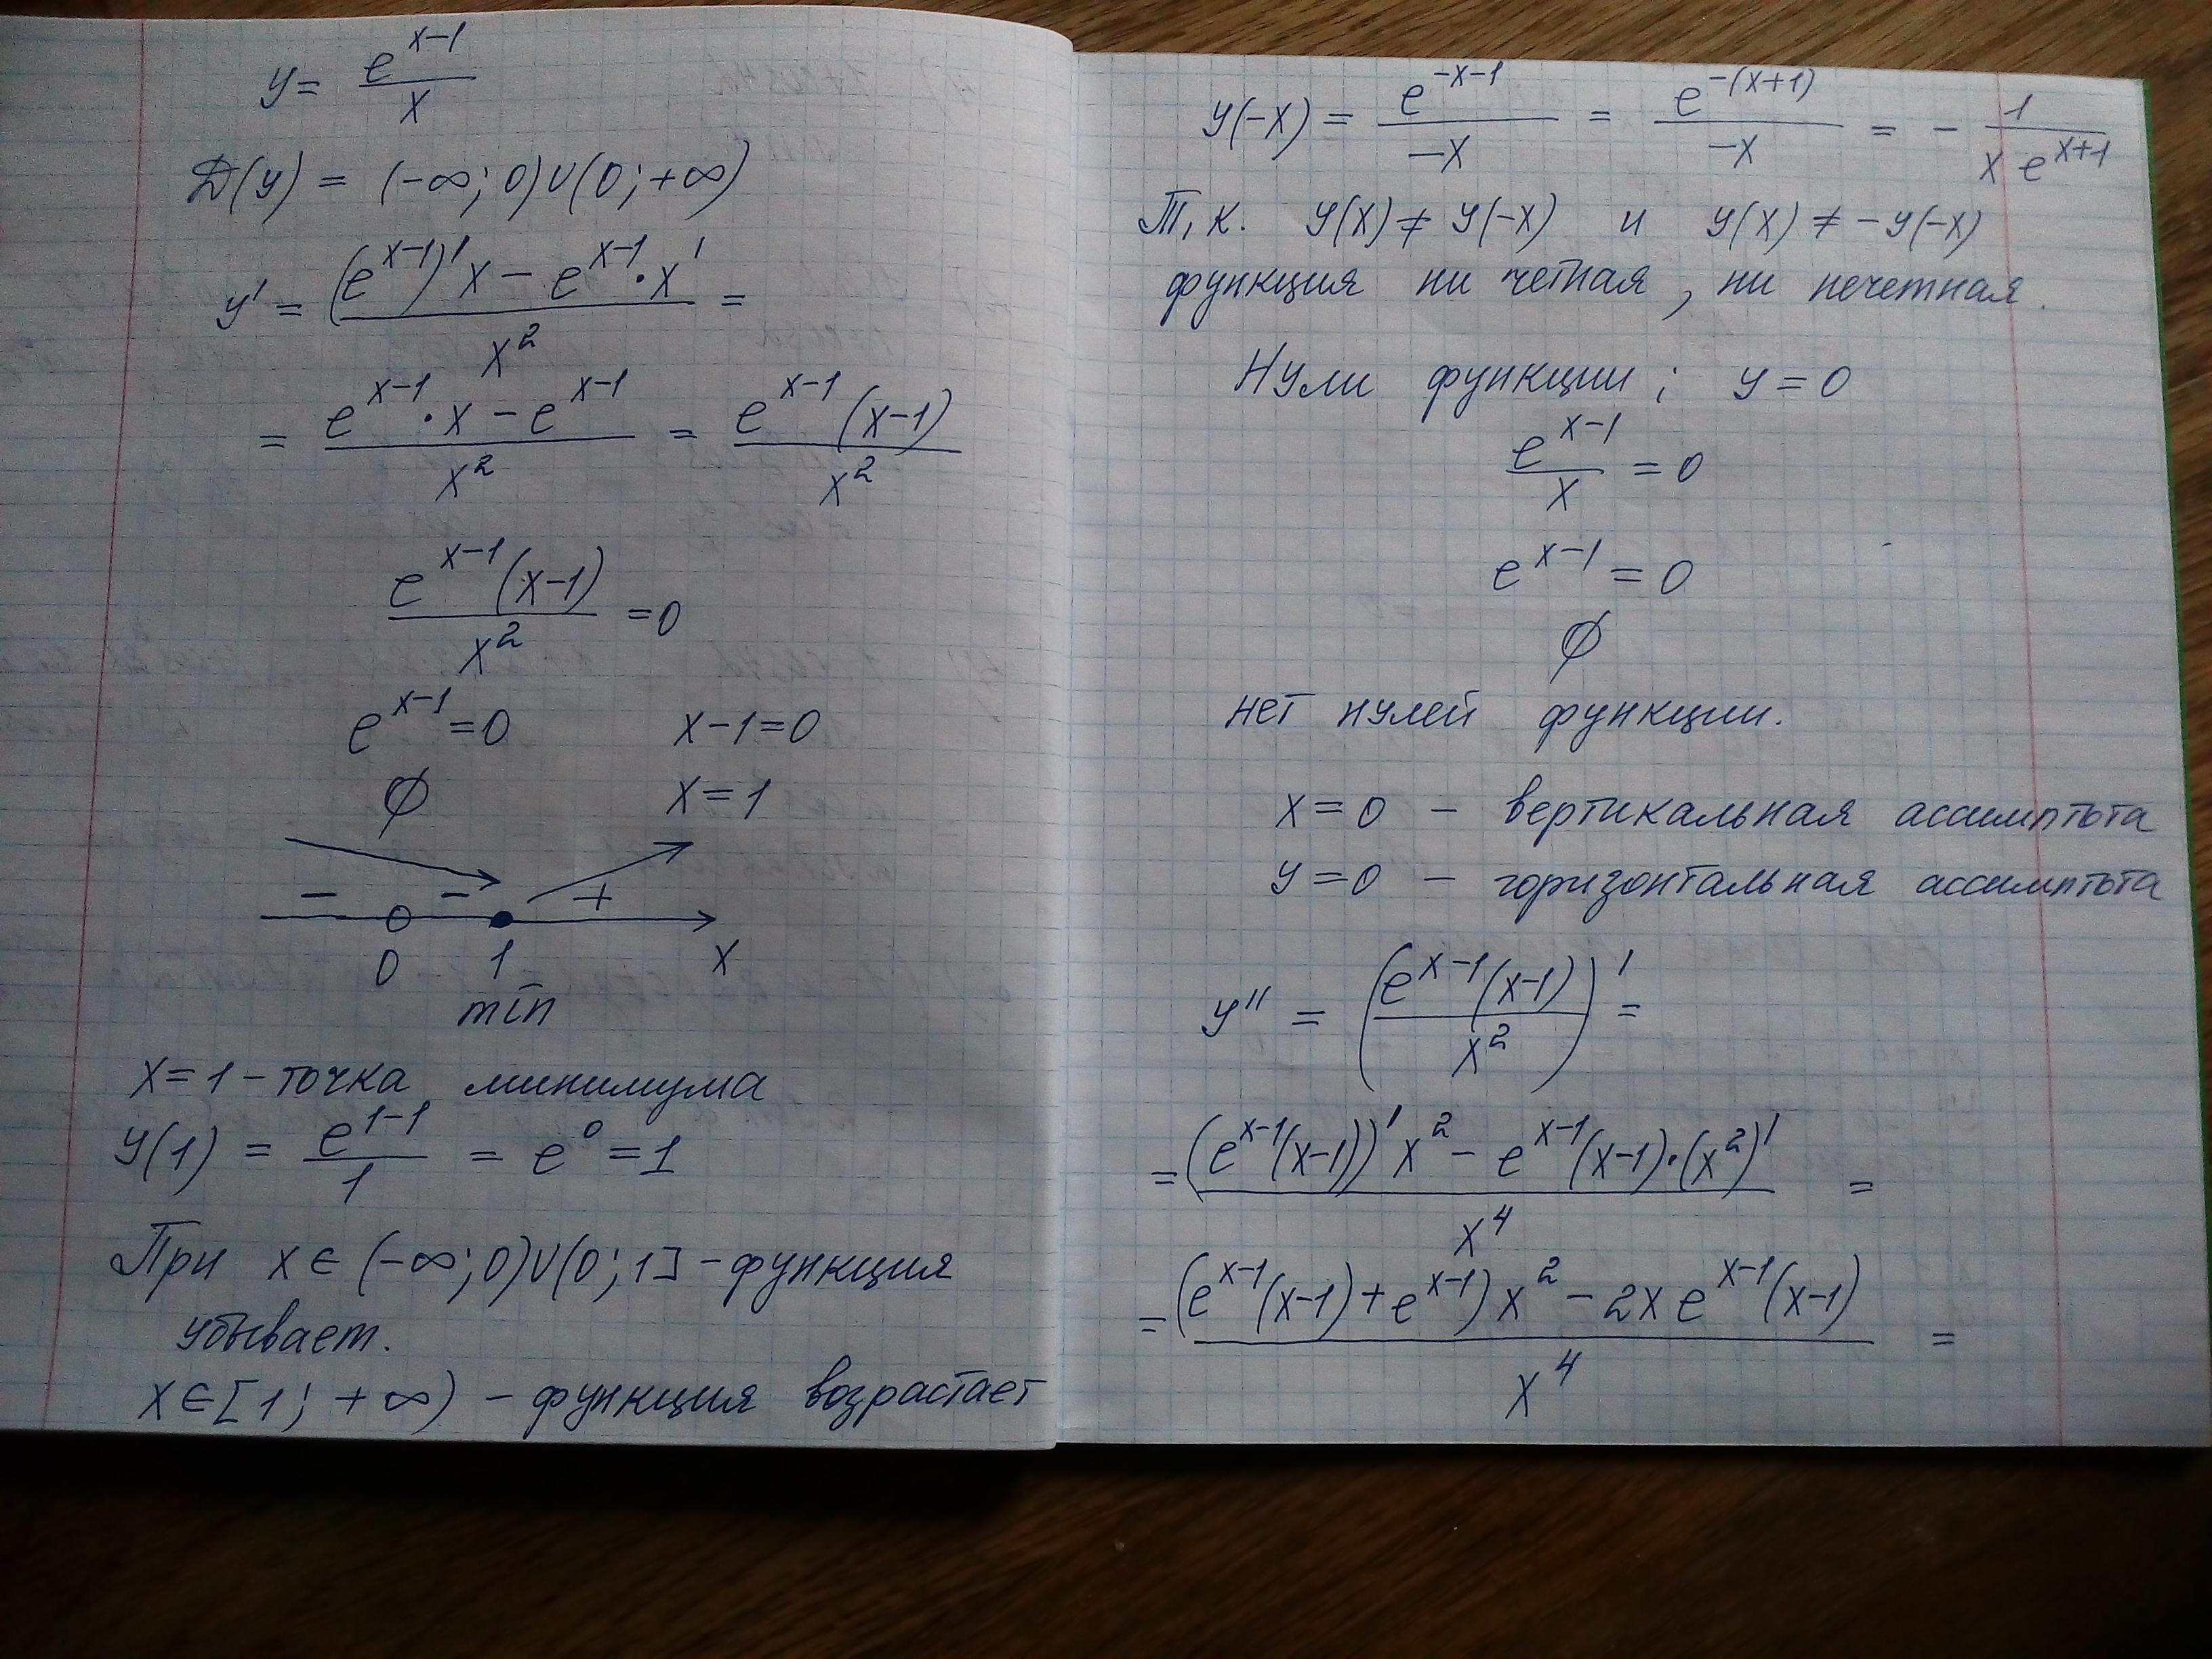 y = e^(x-1) / x
Д(y) = (-∞; 0)∪(0; +∞)
y' = ((e^(x-1))' x - e^(x-1) · x') / x² =
= (e^(x-1) · x - e^(x-1)) / x² = e^(x-1) (x-1) / x²
e^(x-1) (x-1) / x² = 0
e^(x-1) = 0 x-1=0
∅ x=1
- - +
0 1 x
min
x=1 - точка минимума
y(1) = e^(1-1) / 1 = e⁰ = 1
При x ∈ (-∞; 0)∪(0; 1] - функция
убывает.
x ∈ [1; +∞) - функция возрастает
y(-x) = e^(-x-1) / -x = e^(-(x+1)) / -x = - 1 / (x e^(x+1))
Т.к. y(x) ≠ y(-x) и y(x) ≠ -y(-x)
функция ни четная, ни нечетная.
Нули функции; y=0
e^(x-1) / x = 0
e^(x-1) = 0
∅
нет нулей функции.
x=0 - вертикальная ассимптота
y=0 - горизонтальная ассимптота
y'' = (e^(x-1) (x-1) / x²)' =
= ((e^(x-1)(x-1))' x² - e^(x-1)(x-1)·(x²)') / x⁴ =
= ((e^(x-1)(x-1) + e^(x-1)) x² - 2x e^(x-1)(x-1)) / x⁴ =